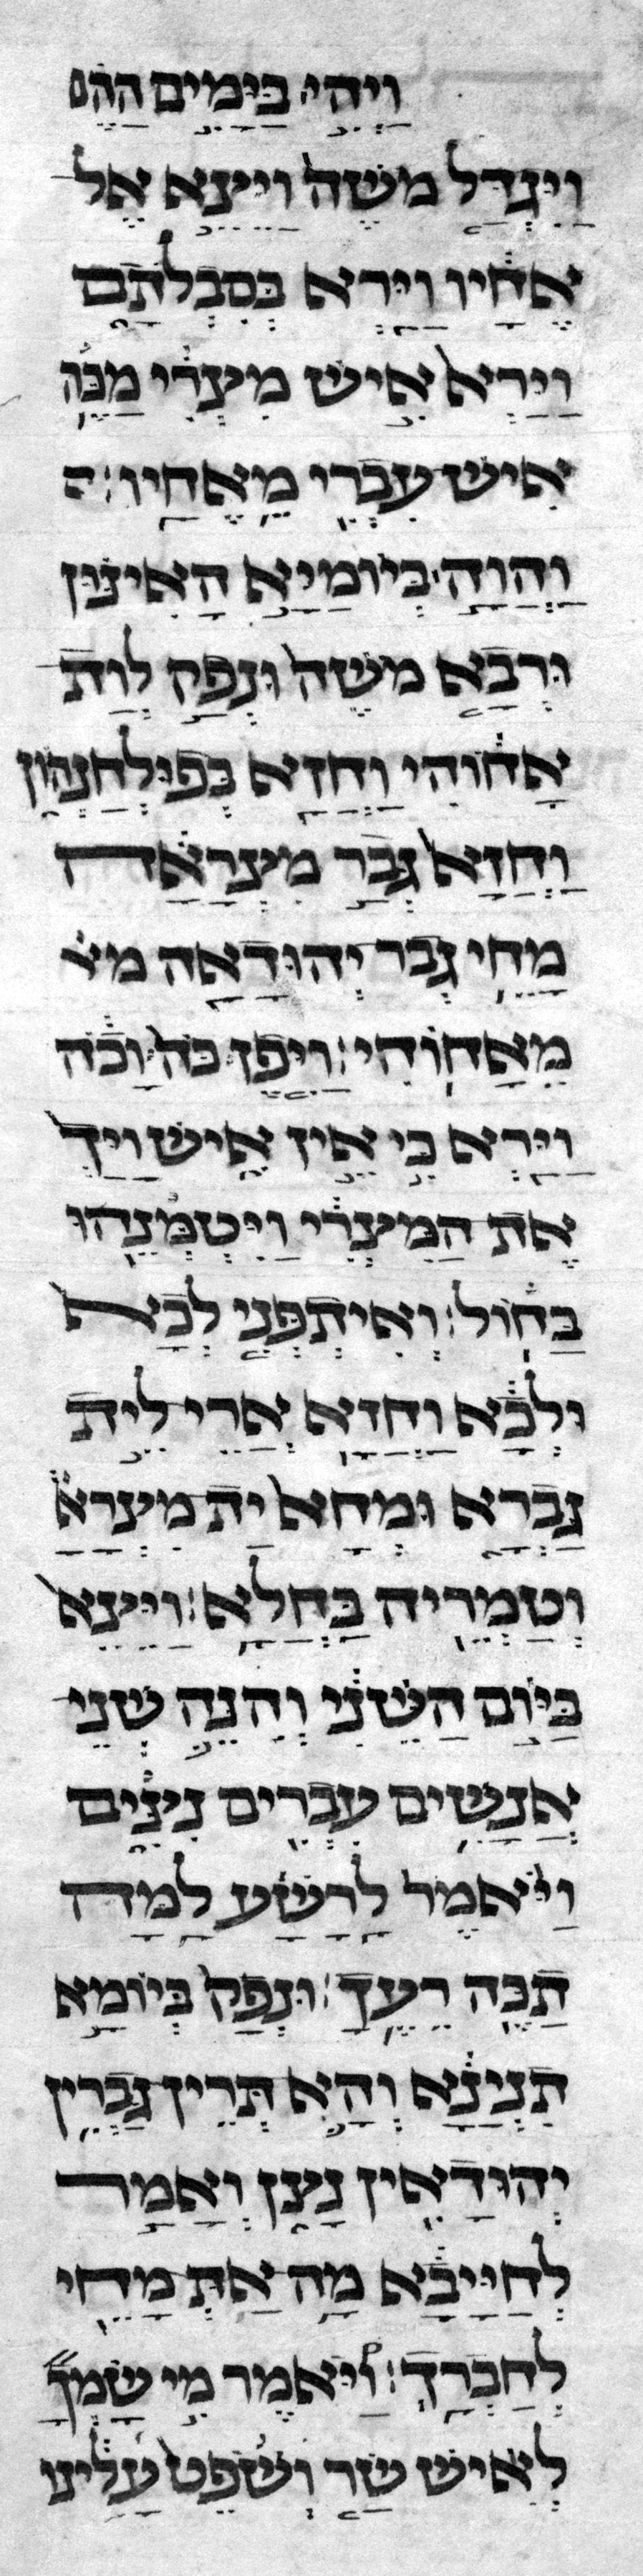 ויהי בימים ההם
ויגדל משה וייצא אל
אחיו וירא בסבלתם
וירא איש מיצרי מכה
איש עברי מאחיו׃
והוה ביומיא האינון
ורבא משה ונפק לות
אחוהי וחזא בפולחנהון
וחזא גבר מיצראה
מחי גבר יהודאה
מאחוהי׃ ויפן כה וכה
וירא כי אין איש ויך
את המיצרי ויטמנהו
בחול׃ ואיתפני לכא
ולכא וחזא ארי לית
גברא ומחא ית מיצרא
וטמריה בחלא׃ וייצא
ביום השני והנה שני
אנשים עברים ניצים
ויאמר לרשע למה
תכה רעך׃ ונפק ביומא
תנינא והא תרין גברין
יהודאין נצן ואמר
לחייבא מה את מחי
לחברך׃ ויאמר מי שמך
לאיש שר ושפט עלינו